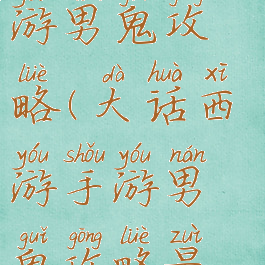 游男鬼攻
lüè dà huà xī
略(大话西
yóu shǒu yóu nán
游手游男
guǐ gōng lüè zuì
鬼攻略最